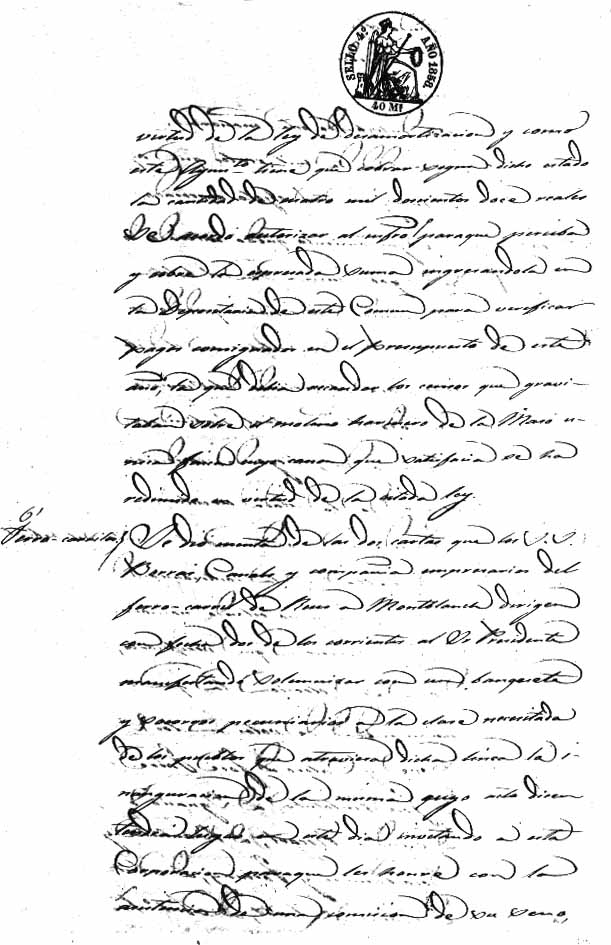 SELLO 4º AÑO 1858
40 Ms
virtud de la ley de desamortizacion y como
este Ayunto tiene que cobrar segun dicho estado
la cantidad de cuatro mil doscientos doce reales
Se acordo autorizar al para que perciba
y cobre la espresada suma ingresandola en
la Depositaria de este Comun para verificar
pagos consignados en el presupuesto de este
año, la que debia los censos que gravi-
taban sobre el molino harinero de la Maso u-
nica finca cuyo canon que satisfacia se ha
redimido en virtud de la citada ley.
6º
Ferro-carriles
Se dió cuenta de las dos cartas que los S.S.
Canela y compañia empresarios del
ferro-carril de Reus a Montblanch dirigen
con fecha dos de los corrientes al Sr Presidente
manifestando solemnizar con un banquete
y socorros pecuniarios a la clase necesitada
de los pueblos que atraviesa dicha linea la i-
nauguracion de la misma cuyo acto deven
tendra lugar en este dia invitando a esta
Corporacion para que les honre con la
asistencia de una comision de su seno,